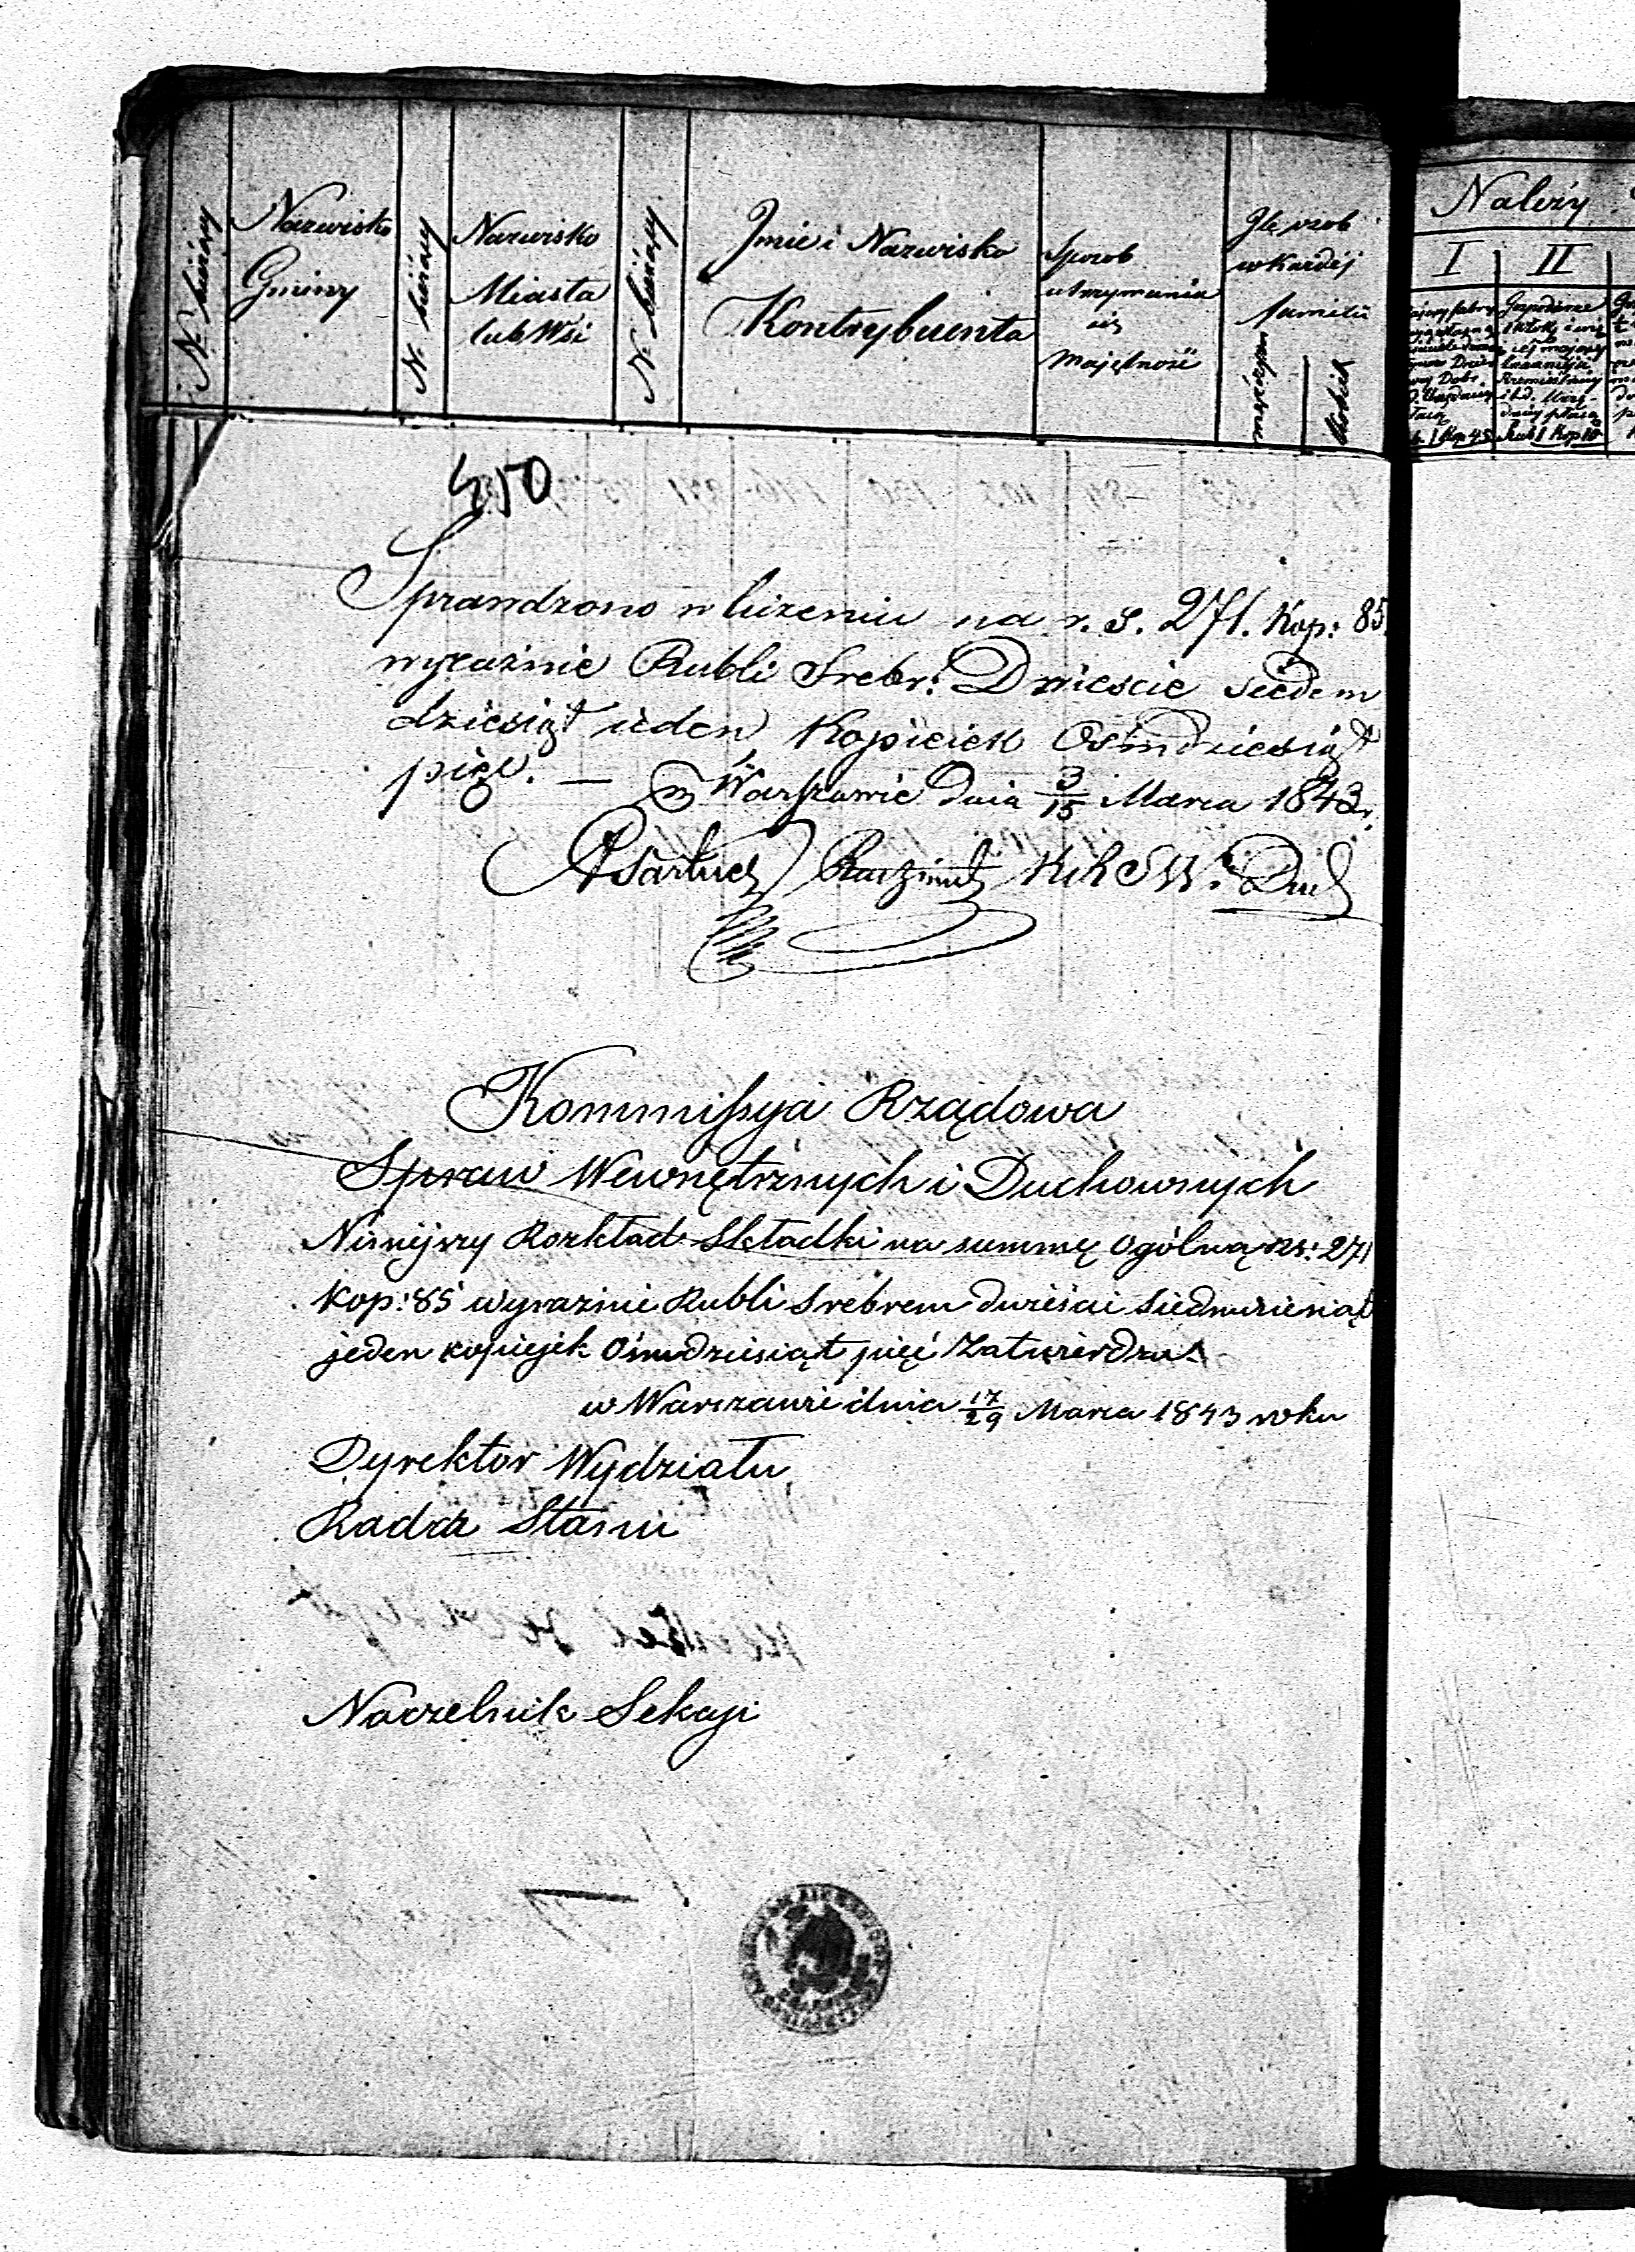 Nr bieżący
Nazwisko
Gminy
Nr bieżący
Nazwisko
Miasta
lub Wsi
Nr bieżący
Jmie i Nazwisko
Kontrybuenta
Sposob
utrzymania
się
majętność
Jle osob
w każdéj
familii
mężczyzn
kobiet
Należy
I II
450
Sprawdzono w liczeniu na r. s. 271. Kop: 85.
wyraźnie Rubli Srebr: Dwieście siedem
dziesiąt ieden Kopieiek Ośmdziesiąt
pięć. — w Warszawie dnia 3/15 Marca 1843 r.
Kommissya Rządowa
Spraw Wewnętrznych i Duchownych
Ninieyszy Rozkład Składki na summę ogólną Rs: 271
kop: 85 wyraźnie Rubli Srebrem dwieście siedmdziesiąt
jeden kopiejek ośmdziesiąt pięć Zatwierdza.
w Warszawie dnia 17/29 Marca 1843 roku
Dyrektor Wydziału
Radca Stanu
Naczelnik Sekcyi